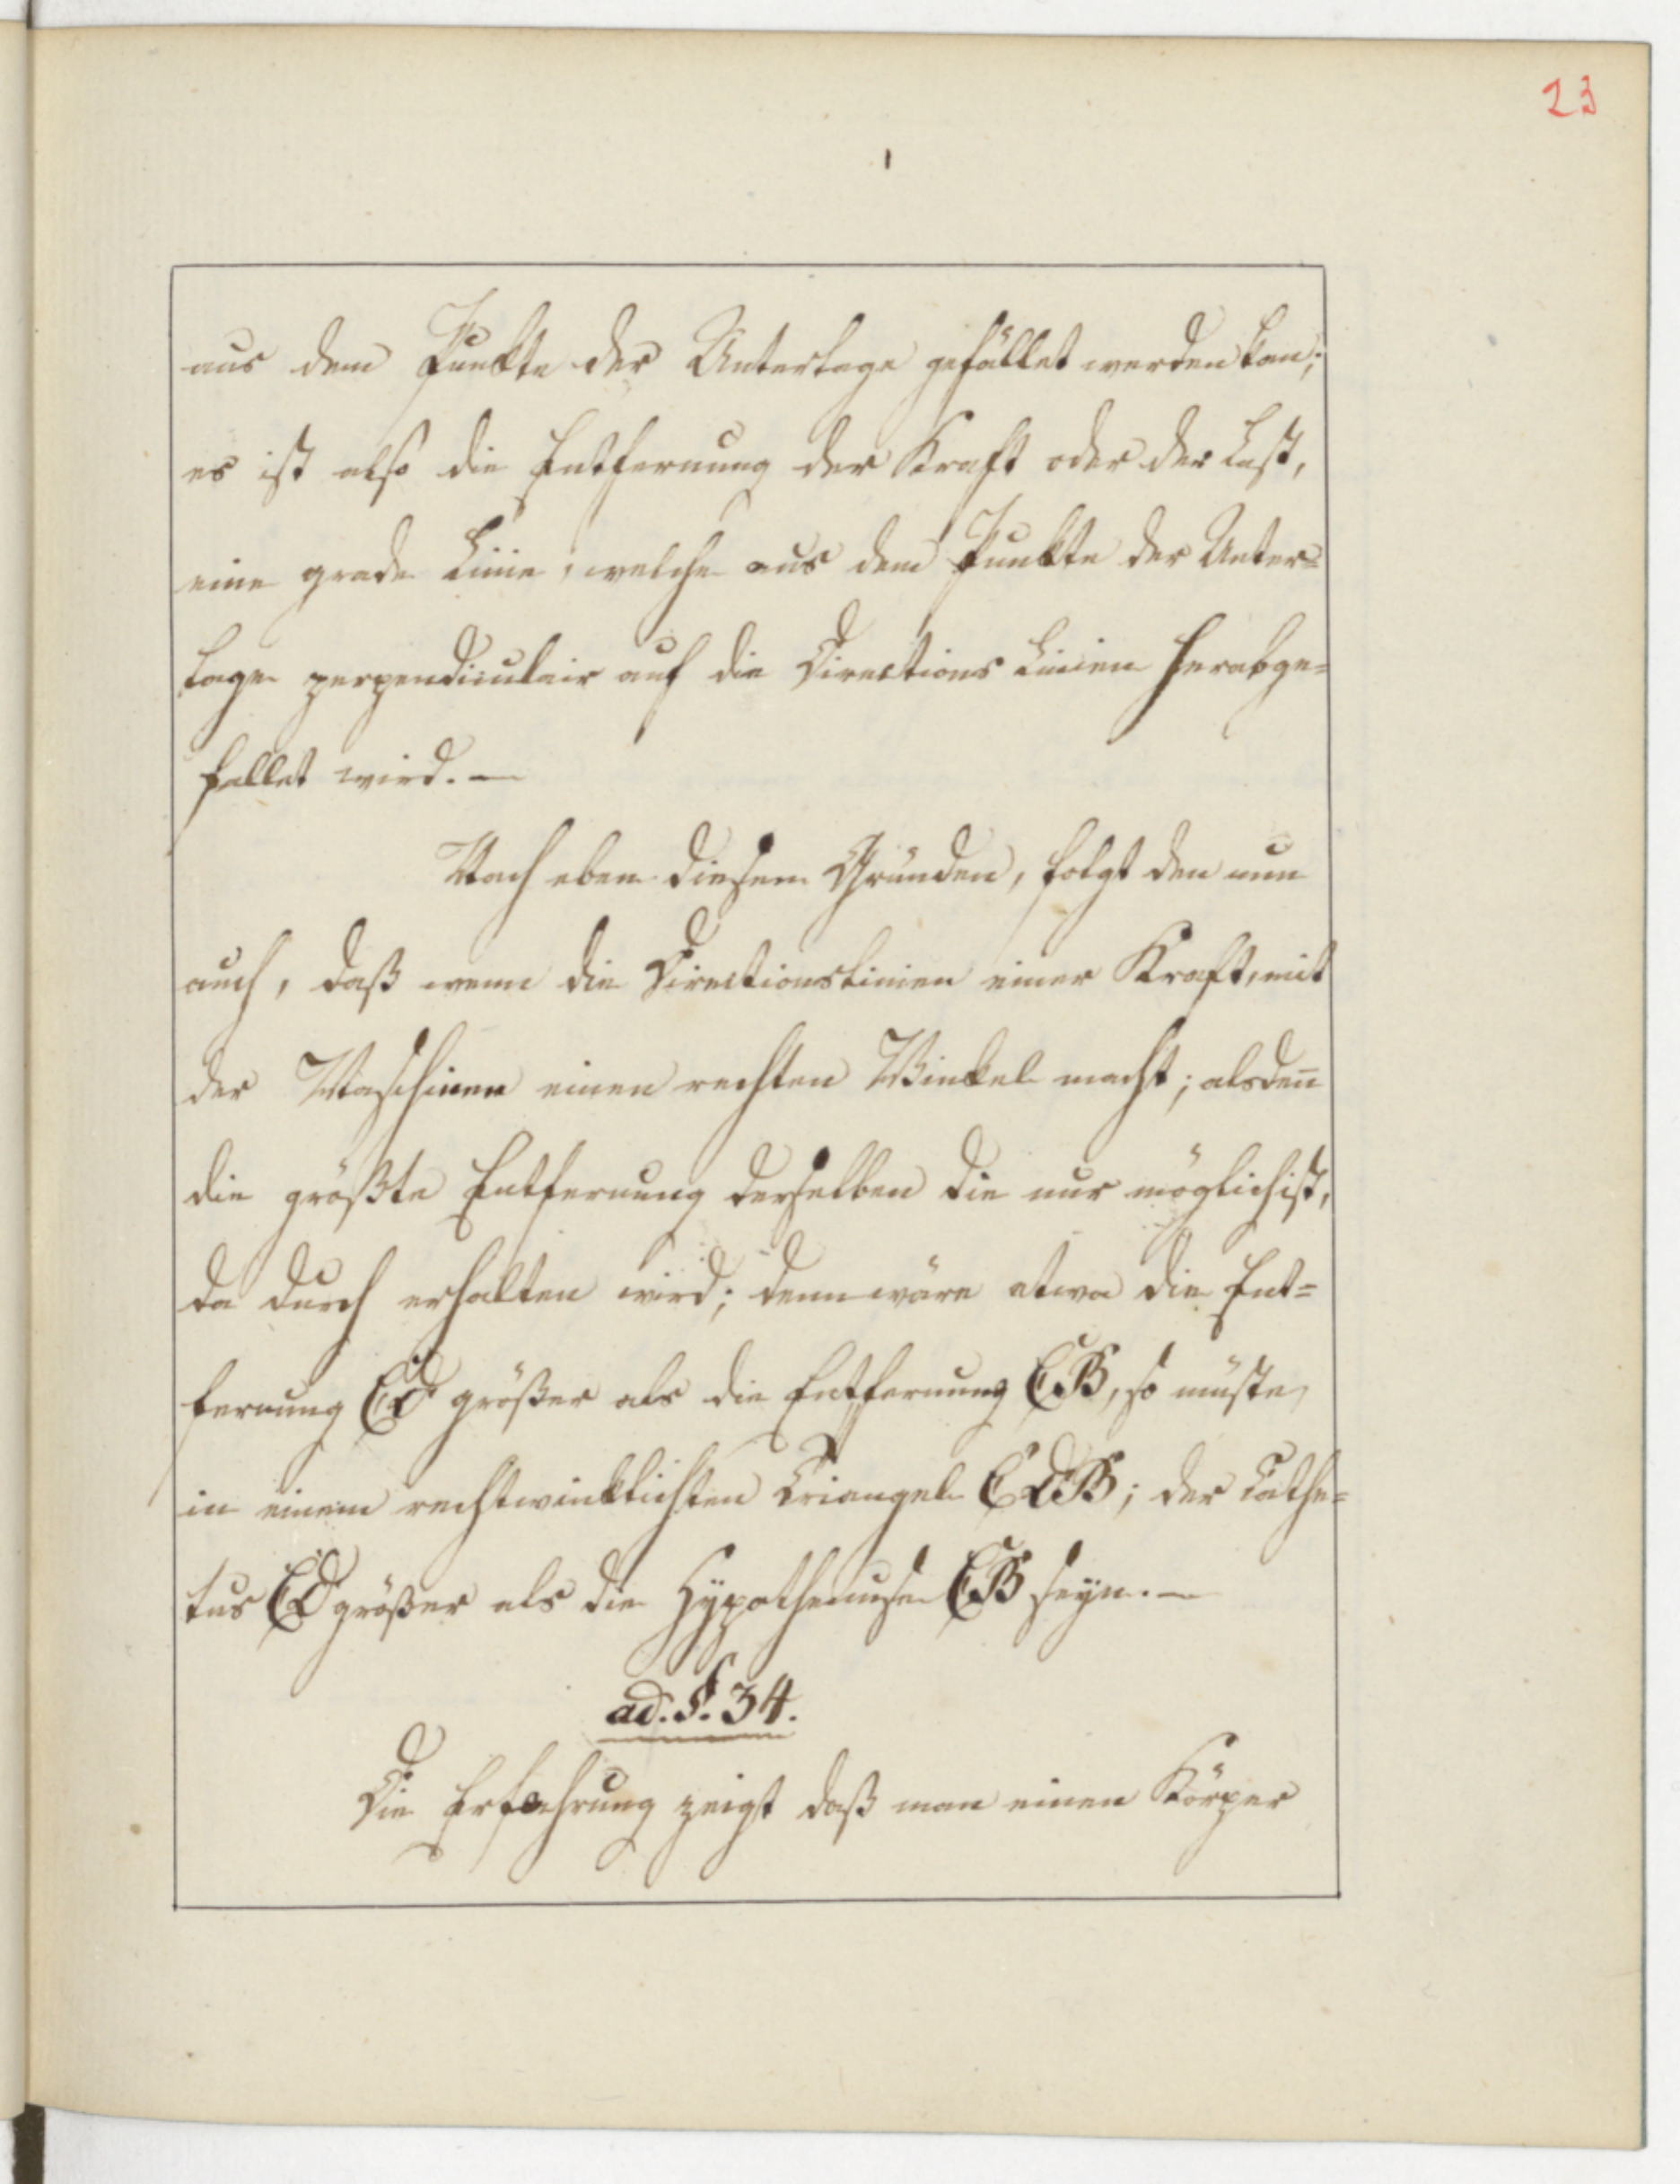 23
aus dem Punkte der Unterlage gefället werden kan;
es ist also die Entfernung der Kraft oder der Last,
eine grade Linie, welche aus dem Punkte der Unter=
lage perpendiculair auf die Directions Linien herabge=
fället wird. —
Nach eben diesem Gründen, folgt den nun
auch, daß wenn die Directionslinien einer Kraft, mit
der Maschinen einen rechten Winkel macht; alsden̅
die größte Entfernung derselben die nur möglich ist,
da durch erhalten wird; denn wäre etwa die Ent=
fernung CD größer als die Entfernung CB, so müste,
in einem rechtwinklichten Triangel CDB; der Cathe=
tus CD größer als die Hÿpothenuse CB seÿn. —
ad. §. 34.
Die Erfahrung zeigt daß man einen Körper